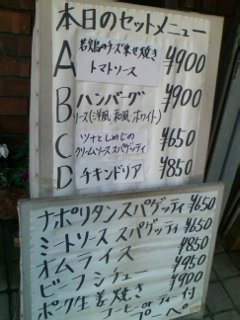 本日のセットメニュー
A 若鶏のチーズ乗せ焼き
トマトソース ¥900
B ハンバーグ ¥900
ソース(洋風、和風、ホワイト)
C ツナとしめじの
クリームソーススパゲッティ ¥650
D チキンドリア ¥850
ナポリタンスパゲッティ ¥650
ミートソーススパゲッティ ¥650
オムライス ¥850
ビーフシチュー ¥950
ポーク生姜焼き ¥900
コーヒー or ティー 付